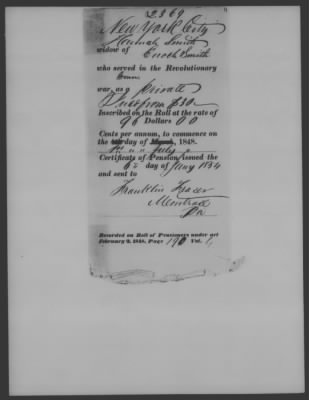 2369
New York City
Hannah Smith
widow of Enoch Smith
who served in the Revolutionary
war, as a Private
Inscribed on the Roll at the rate of
96 Dollars 00
Cents per annum, to commence on
the day of March, 1848.
July
Certificate of Pension issued the
6th day of Jany 1854
and sent to
Franklin Fraser
Montrose
Pa
Recorded on Roll of Pensioners under act
February 2, 1848, Page 190 Vol. 1,